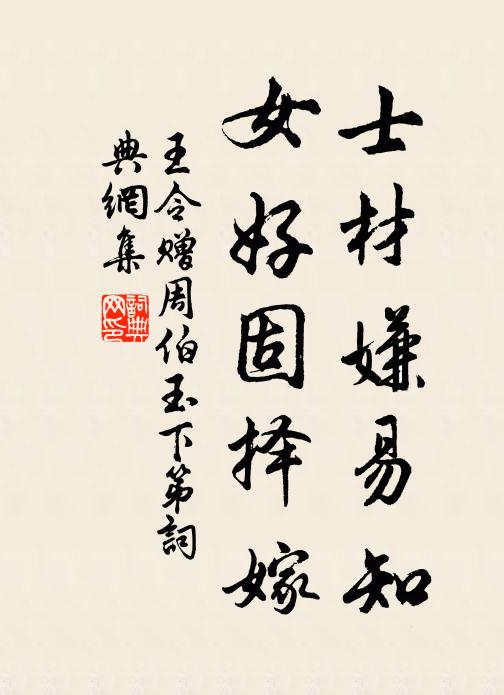 士材嫌易知
女好固择嫁
王令赠周伯玉下第詞
典網集
詞典
网印